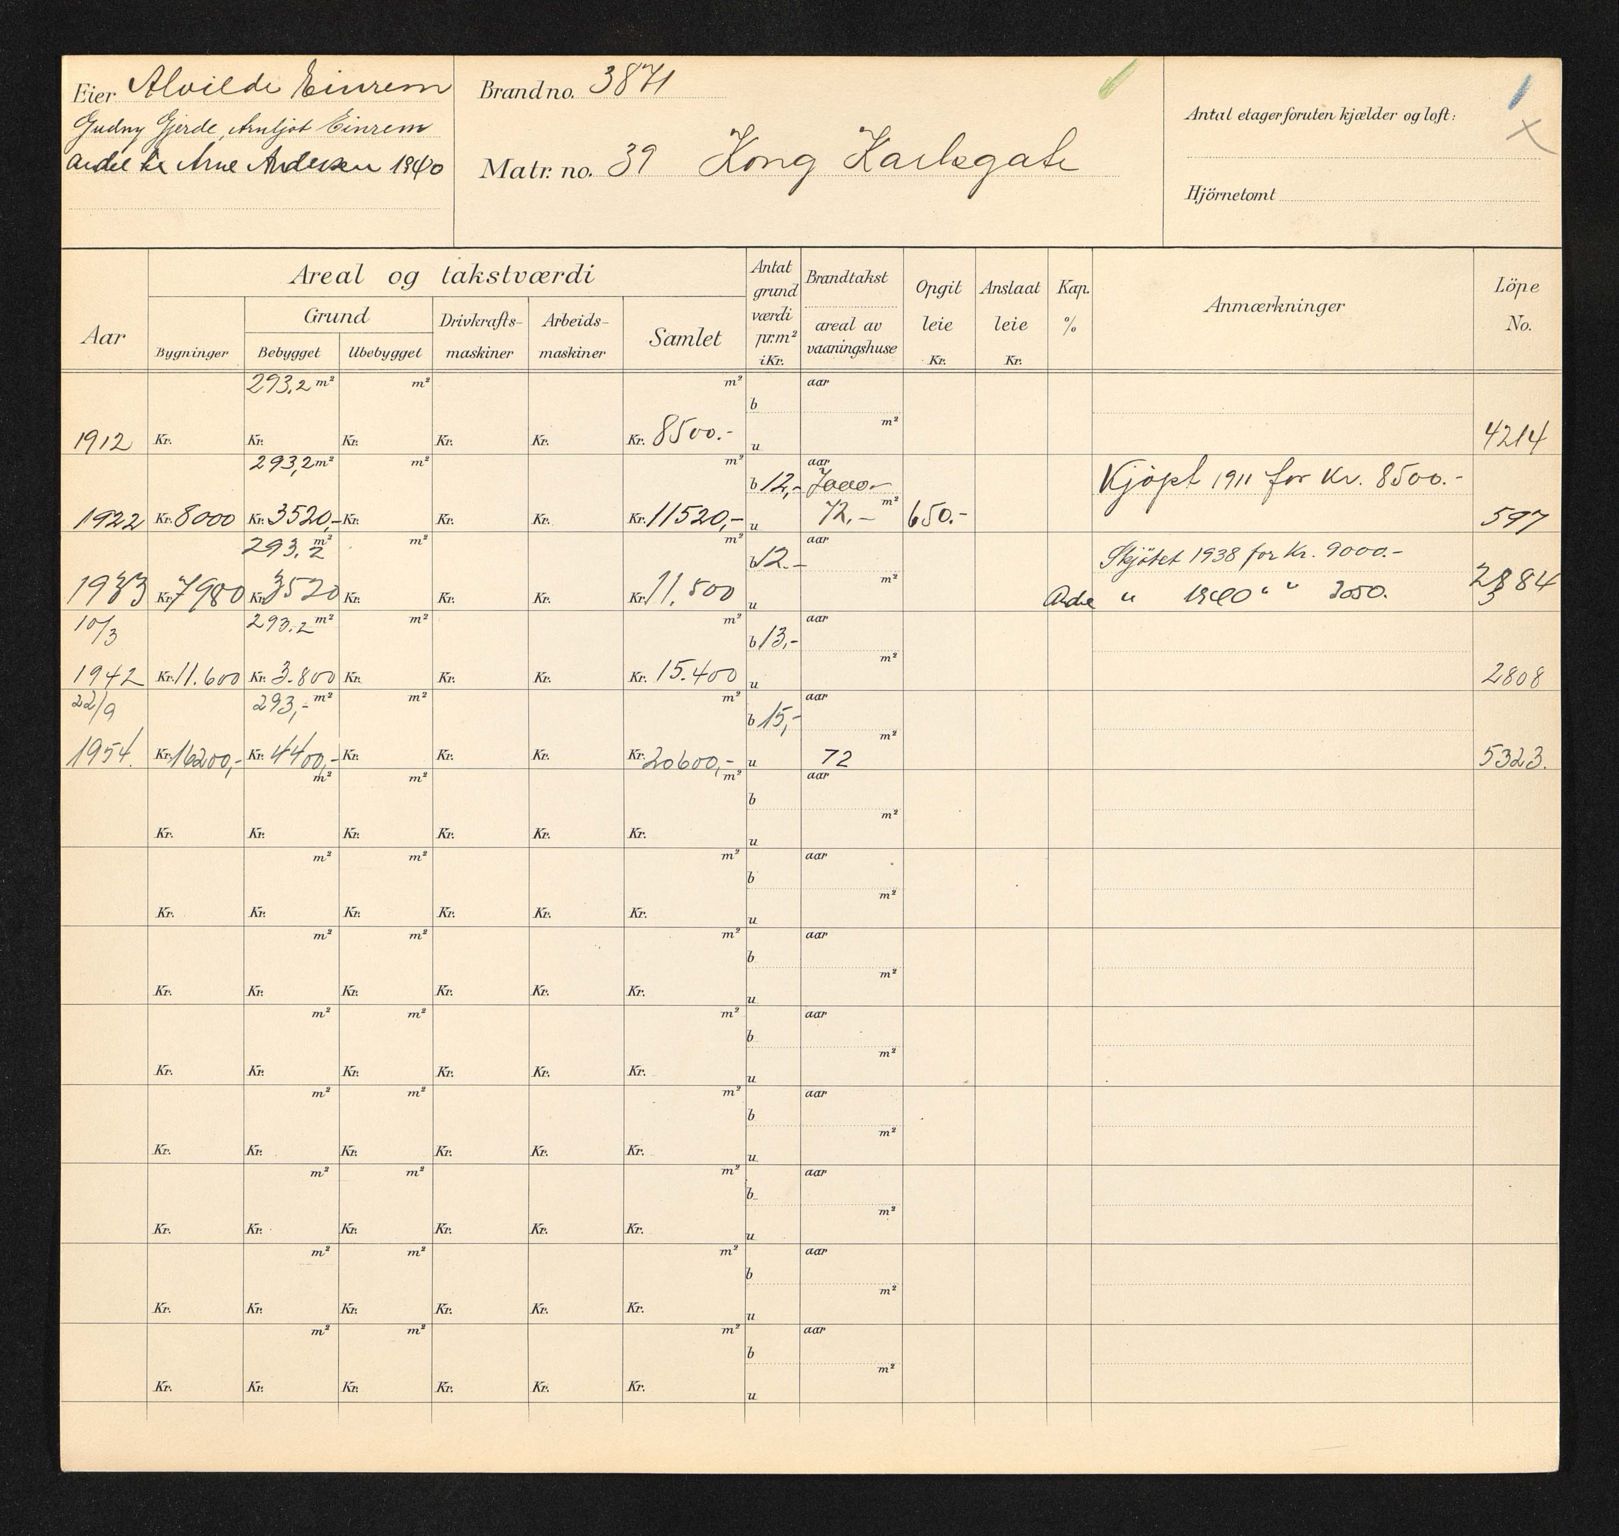 Eier Alvilde Einrem
Gudny Gjerde, Arnljot Einrem
andel til Arne Andersen 1940
Brandno. 3871
Matr. no. 39 Kong Karlsgate
Antal etager foruten kjælder og loft:
Hjörnetomt
1
X
Areal og takstværdi
Aar
Bygninger
Grund
Bebygget
Ubebygget
Drivkrafts-
maskiner
Arbeids-
maskiner
Samlet
Antat
grund
værdi
pr.m²
i Kr.
Brandtakst
areal av
vaaningshuse
Opgit
leie
Kr.
Anslaat
leie
Kr.
Kap.
%
Anmærkninger
Löpe
No.
293,2 m² m² m² aar
b
m²
1912 Kr. Kr. Kr. Kr. Kr. Kr. 8500.- u 4214
293,2 m² m² m² aar
b 12,- 7000.- Kjöpt 1911 for Kr. 8500.-
m²
1922 Kr. 8000 Kr. 3520,- Kr. Kr. Kr. Kr. 11520,- u 72,- 650.- 597
293,2 m² m² m² aar
b 12.- Skjötet 1938 for Kr. 9000.-
m²
1933 Kr. 7980 Kr. 3520 Kr. Kr. Kr. Kr. 11.500 u " 1940 " " 3050. 2884
3
10/3 293.2 m² m² m² aar
b 13,-
m²
1942 Kr. 11.600 Kr. 3.800 Kr. Kr. Kr. Kr. 15.400 u 2808
22/9 293,- m² m² m² aar
b 15,-
m²
1954. Kr. 16200,- Kr. 4400,- Kr. Kr. Kr. Kr. 20600,- u 72 5323.
m² m² m² aar
b
m²
Kr. Kr. Kr. Kr. Kr. Kr. u
m² m² m² aar
b
m²
Kr. Kr. Kr. Kr. Kr. Kr. u
m² m² m² aar
b
m²
Kr. Kr. Kr. Kr. Kr. Kr. u
m² m² m² aar
b
m²
Kr. Kr. Kr. Kr. Kr. Kr. u
m² m² m² aar
b
m²
Kr. Kr. Kr. Kr. Kr. Kr. u
m² m² m² aar
b
m²
Kr. Kr. Kr. Kr. Kr. Kr. u
m² m² m² aar
b
m²
Kr. Kr. Kr. Kr. Kr. Kr. u
m² m² m² aar
b
m²
Kr. Kr. Kr. Kr. Kr. Kr. u